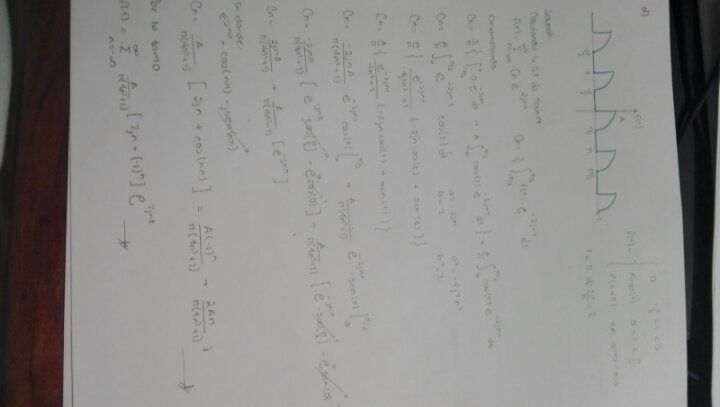 d)
f(t)
A
f(t)= { 0 -π/2 < t < 0
A cos(t) 0 < t < π/2
f(t+T) en otro caso
T = π ω0 = 2π/π = 2
Solución
Calculando la S.F. de
f(t)= Σ n=-∞ ∞ Cn e^2jnt Cn= 1/T ∫ -π/2 π/2 f(t) · e^-2jnt dt
Desarrollando
Cn= 1/π { ∫ -π/2 0 0 e^-2jnt dt + A ∫ 0 π/2 cos(t) e^-2jnt dt } = A/π ∫ 0 π/2 cos(t) e^-2jnt dt
Cn= A/π ∫ 0 π/2 e^-2jnt · cos(t) dt a=-2jn a²=-4j²n²
b=1 b²=1
Cn= A/π { e^-2jnt / -4j²n²+1 (-2jn cos(t) + sen(t)) }
Cn= A/π { e^-2jnt / 4n²+1 (-2jn cos(t) + sen(t)) }
Cn= -2jnA / π(4n²+1) e^-2jnt · cos(t) | 0 π/2 + A / π(4n²+1) e^-2jnt · sen(t) | 0 π/2
Cn= -2jnA / π(4n²+1) [ e^-jnπ cos(π/2) - e^0 cos(0) ] + A / π(4n²+1) [ e^-jnπ · sen(π/2) - e^0 sen(0) ]
Cn= 2jnA / π(4n²+1) + A / π(4n²+1) [ e^-jnπ ]
En donde:
e^-jnπ = cos(nπ) - j sen(nπ)
Cn= A / π(4n²+1) [ 2jn + cos(nπ) ] = A(-1)^n / π(4n²+1) + 2An / π(4n²+1) j
Por lo tanto:
f(t) = Σ n=-∞ ∞ A / π(4n²+1) [ 2jn + (-1)^n ] e^2jnt